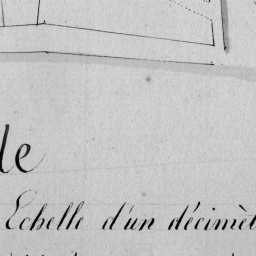 le
Echelle d'un décimèt